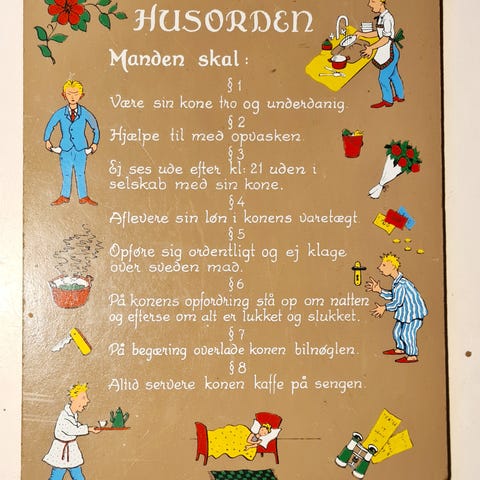 HUSORDEN
Manden skal:
§ 1
Være sin kone tro og underdanig.
§ 2
Hjælpe til med opvasken.
§ 3
Ej ses ude efter kl: 21 uden i
selskab med sin kone.
§ 4
Aflevere sin løn i konens varetægt.
§ 5
Opføre sig ordentligt og ej klage
over sveden mad.
§ 6
På konens opfordring stå op om natten
og efterse om alt er lukket og slukket.
§ 7
På begæring overlade konen bilnøglen.
§ 8
Altid servere konen kaffe på sengen.